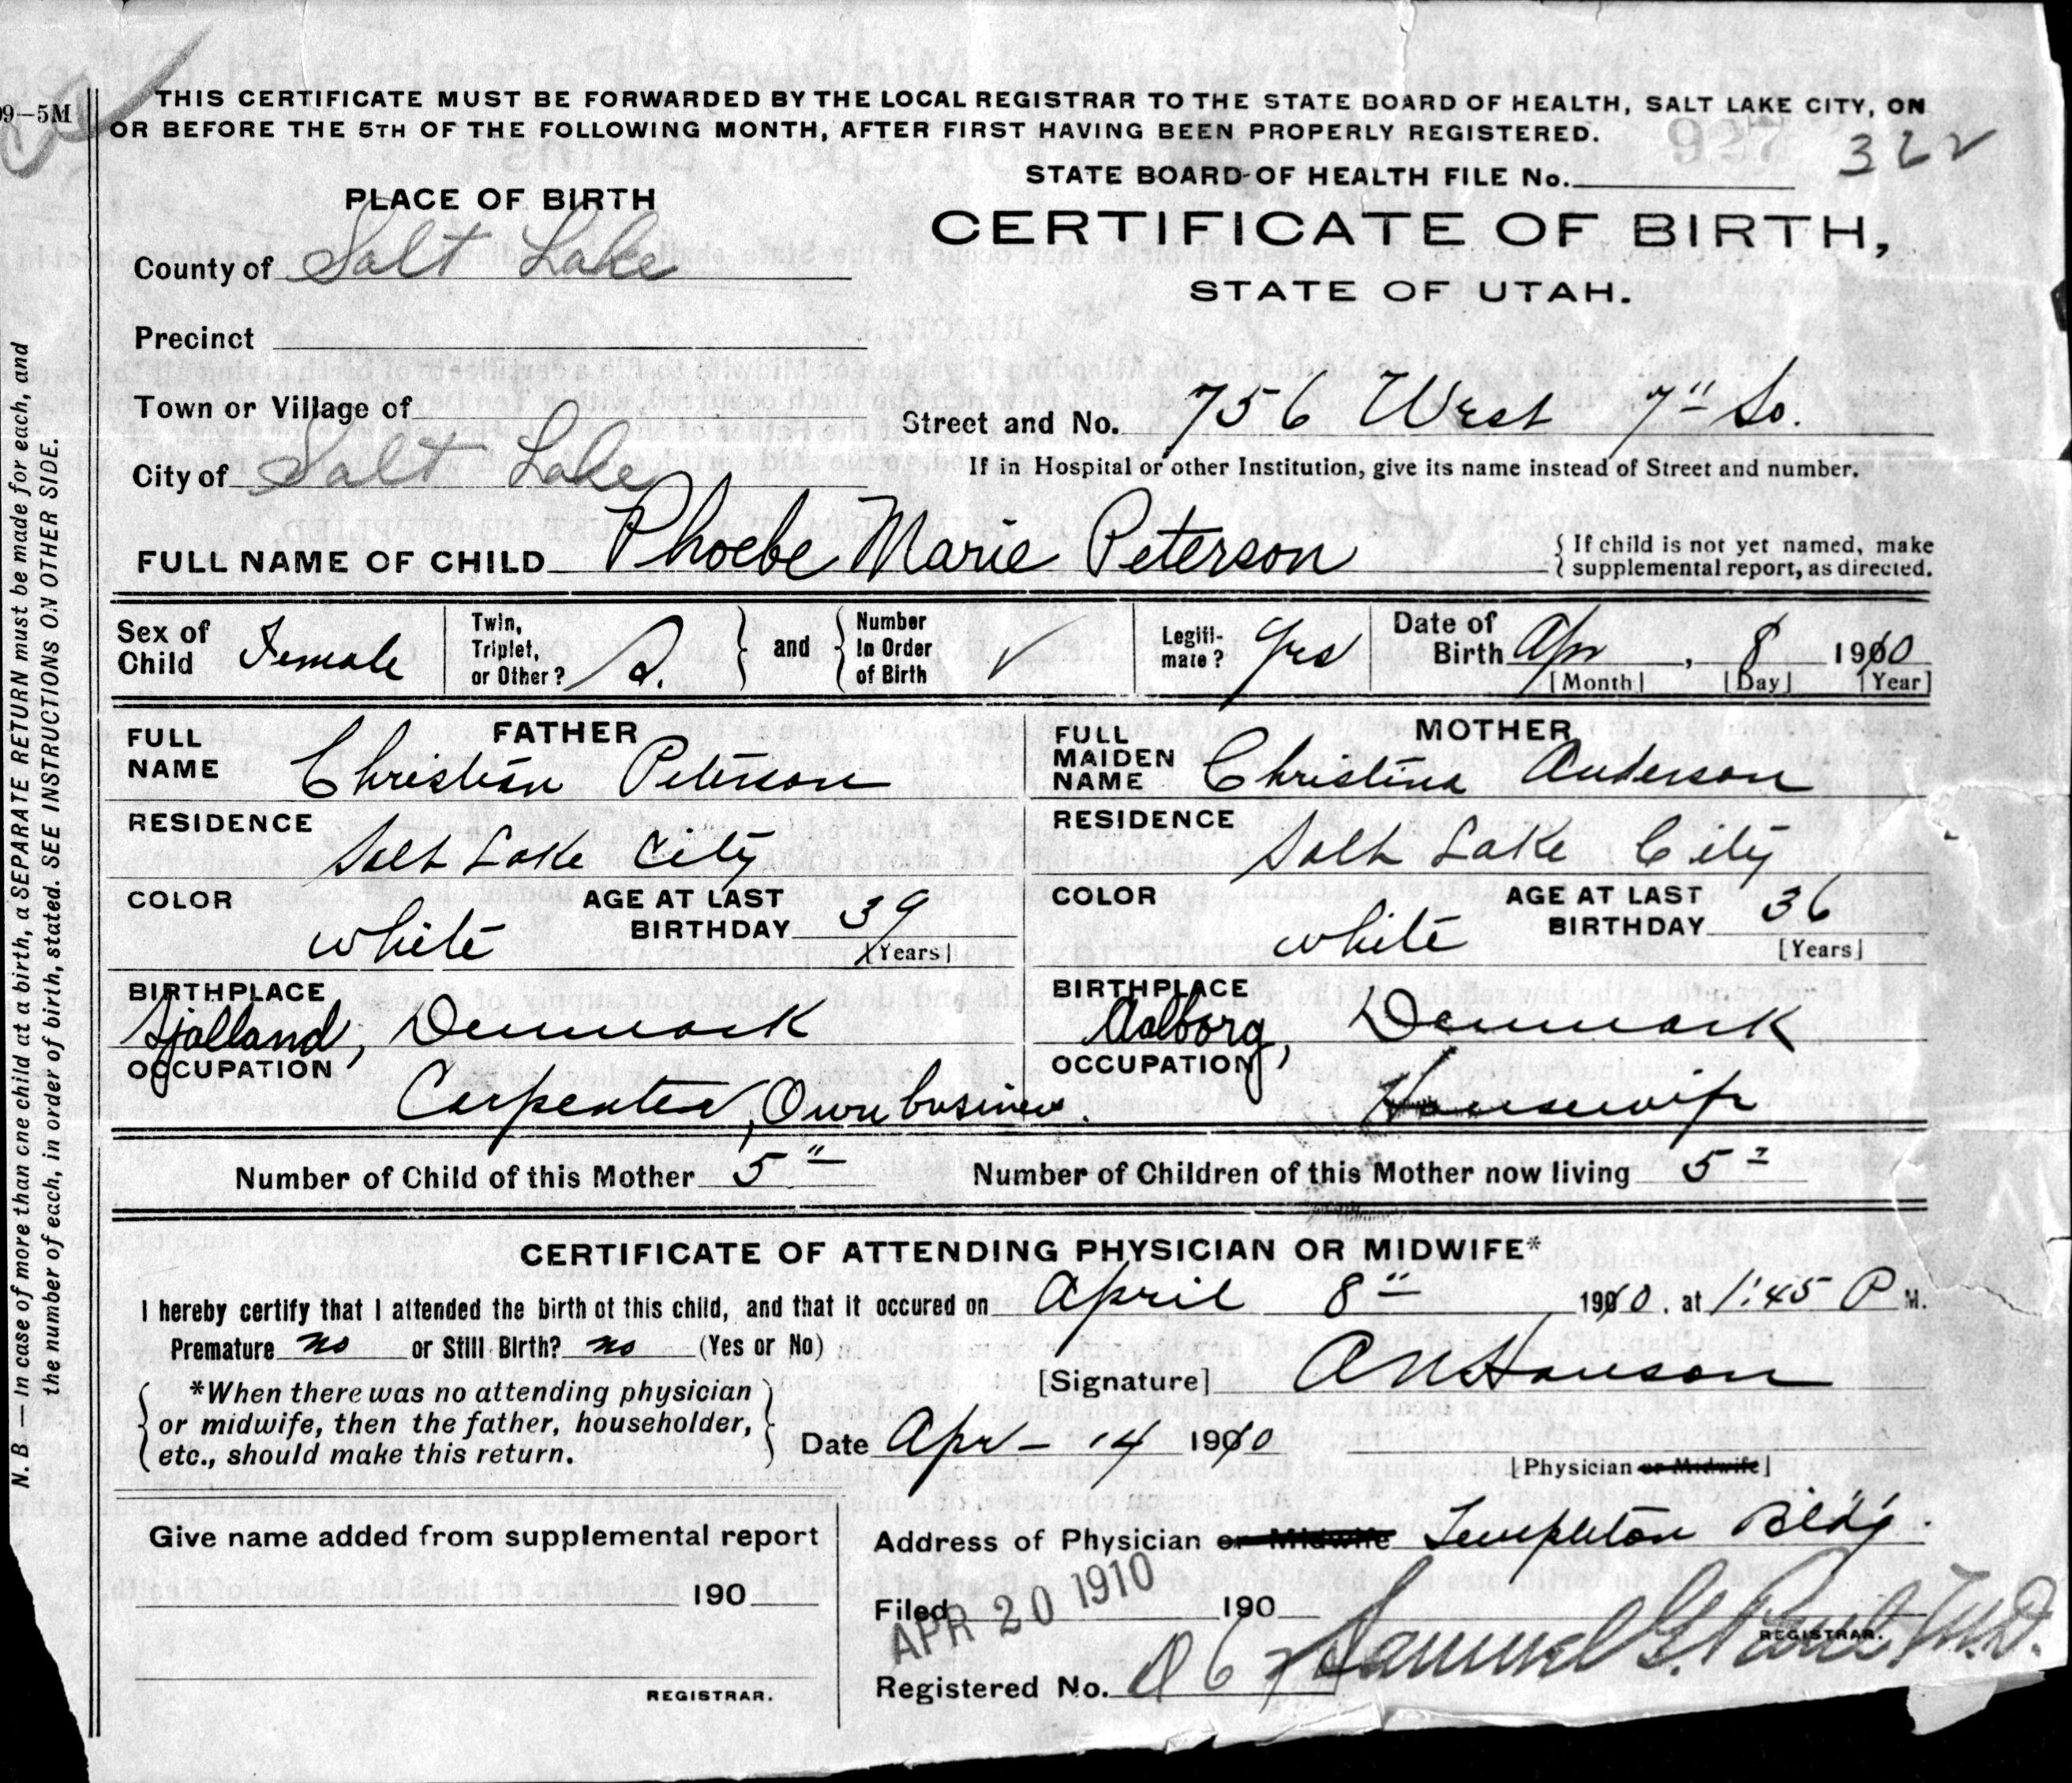 09—5M
THIS CERTIFICATE MUST BE FORWARDED BY THE LOCAL REGISTRAR TO THE STATE BOARD OF HEALTH, SALT LAKE CITY, ON
OR BEFORE THE 5TH OF THE FOLLOWING MONTH, AFTER FIRST HAVING BEEN PROPERLY REGISTERED.
927
322
STATE BOARD OF HEALTH FILE No.
CERTIFICATE OF BIRTH,
STATE OF UTAH.
PLACE OF BIRTH
County of Salt Lake
Precinct
Town or Village of
City of Salt Lake
Street and No. 756 West 7" So.
If in Hospital or other Institution, give its name instead of Street and number.
FULL NAME OF CHILD Phoebe Marie Peterson
{ If child is not yet named, make
{ supplemental report, as directed.
Sex of Child Female
Twin, Triplet, or Other? } and { Number In Order of Birth ✓
Legiti-mate? Yes
Date of Birth Apr, 8 1910
[Month] [Day] [Year]
FATHER
FULL NAME Christian Peterson
RESIDENCE Salt Lake City
COLOR white AGE AT LAST BIRTHDAY 39 [Years]
BIRTHPLACE Sjalland, Denmark
OCCUPATION Carpenter, Own business.
MOTHER
FULL MAIDEN NAME Christina Anderson
RESIDENCE Salt Lake City
COLOR white AGE AT LAST BIRTHDAY 36 [Years]
BIRTHPLACE Aalborg, Denmark
OCCUPATION Housewife
Number of Child of this Mother 5" Number of Children of this Mother now living 5
CERTIFICATE OF ATTENDING PHYSICIAN OR MIDWIFE*
I hereby certify that I attended the birth of this child, and that it occured on April 8" 1910, at 1:45 P M.
Premature no or Still Birth? no (Yes or No)
*When there was no attending physician
or midwife, then the father, householder,
etc., should make this return.
[Signature] A N Hanson
Date Apr - 14 1910
[Physician or Midwife]
Address of Physician or Midwife Templeton Bldg.
Give name added from supplemental report
190
REGISTRAR.
Filed APR 20 1910 190
Samuel G. Paul, M.D.
REGISTRAR.
Registered No.
N. B.—In case of more than one child at a birth, a SEPARATE RETURN must be made for each, and
the number of each, in order of birth, stated. SEE INSTRUCTIONS ON OTHER SIDE.